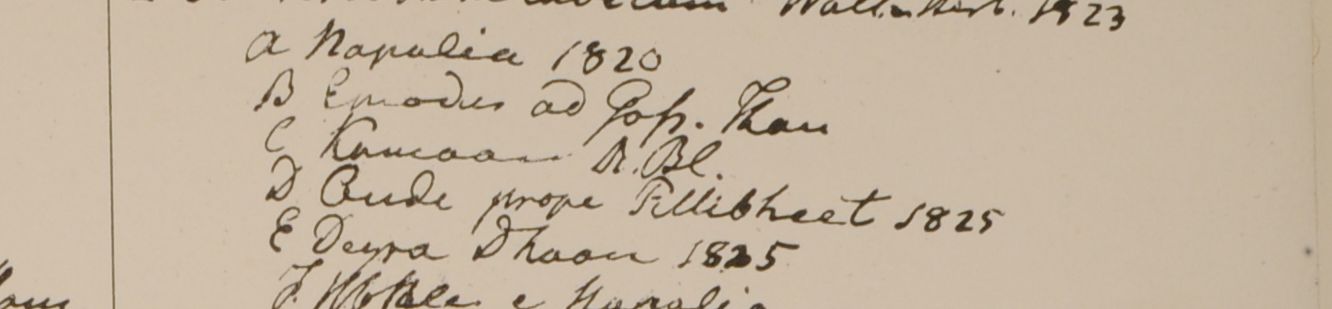 Wall. Herb. 1823
a Napalia 1820
B Emodus ad Gofs. Than
C Kumaon R. Bl.
D Oude prope Pillibheet 1825
E Deyra Dhoon 1825
F. e Napalia